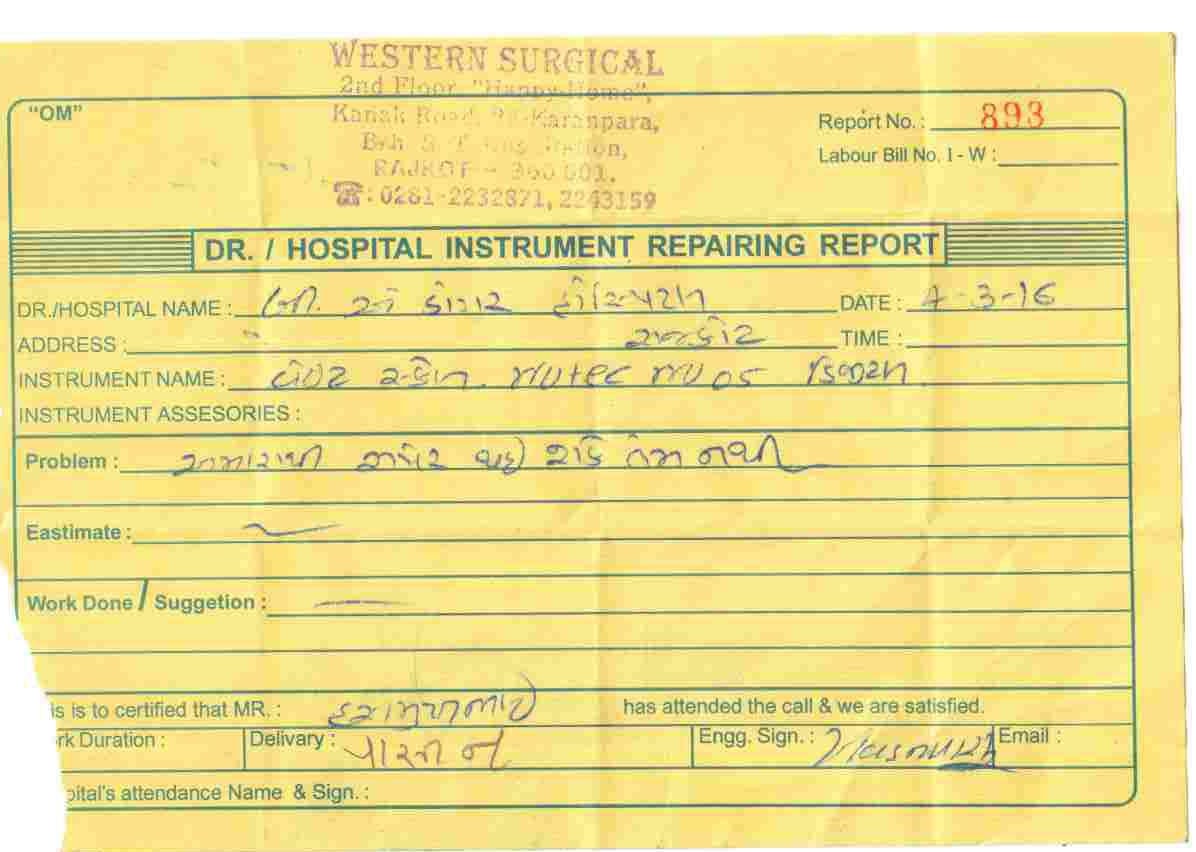 WESTERN SURGICAL
2nd Floor, "Happy Home",
Kanak Road, Karanpara,
Bh. S. T. Bus Station,
RAJKOT - 360 001.
☎: 0281-2232871, 2243159
"OM"
Report No. : 893
Labour Bill No. I - W :
DR. / HOSPITAL INSTRUMENT REPAIRING REPORT
DR./HOSPITAL NAME : હોસ્પિટલ DATE : 4-3-16
ADDRESS : રાજકોટ TIME :
INSTRUMENT NAME :
INSTRUMENT ASSESORIES :
Problem : અમારાથી રીપેર થઇ શકે તેમ નથી
Eastimate :
Work Done / Suggetion :
is is to certified that MR. : હસમુખભાઈ has attended the call & we are satisfied.
rk Duration : Delivary : Engg. Sign. : Hasmukh Email :
pital's attendance Name & Sign. :